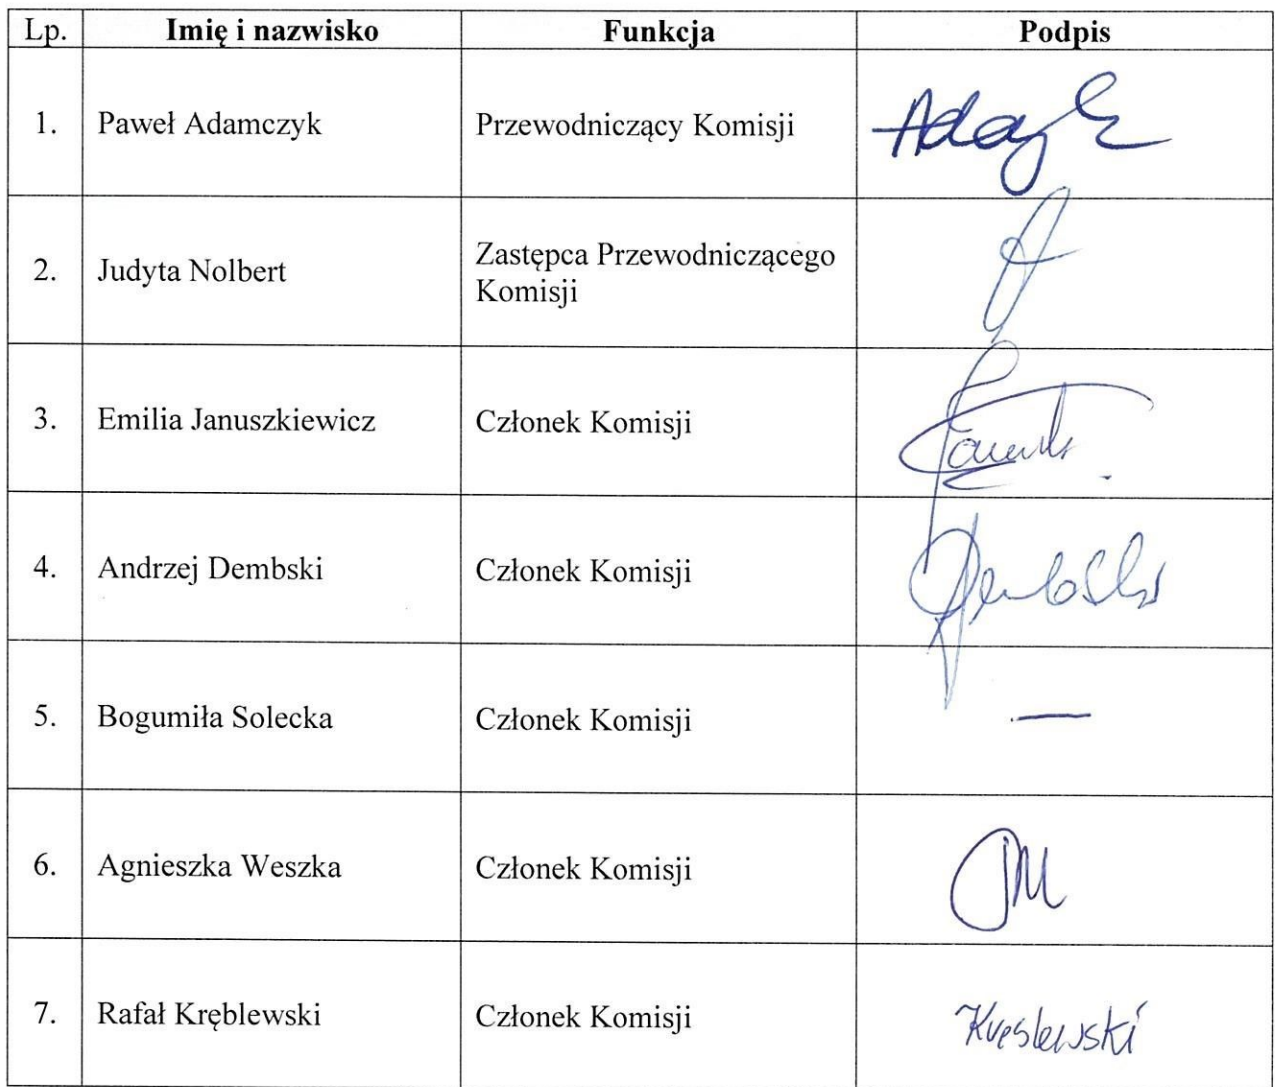 Lp. Imię i nazwisko Funkcja Podpis
1. Paweł Adamczyk Przewodniczący Komisji
2. Judyta Nolbert Zastępca Przewodniczącego
Komisji
3. Emilia Januszkiewicz Członek Komisji
4. Andrzej Dembski Członek Komisji Dembski
5. Bogumiła Solecka Członek Komisji —
6. Agnieszka Weszka Członek Komisji
7. Rafał Kręblewski Członek Komisji